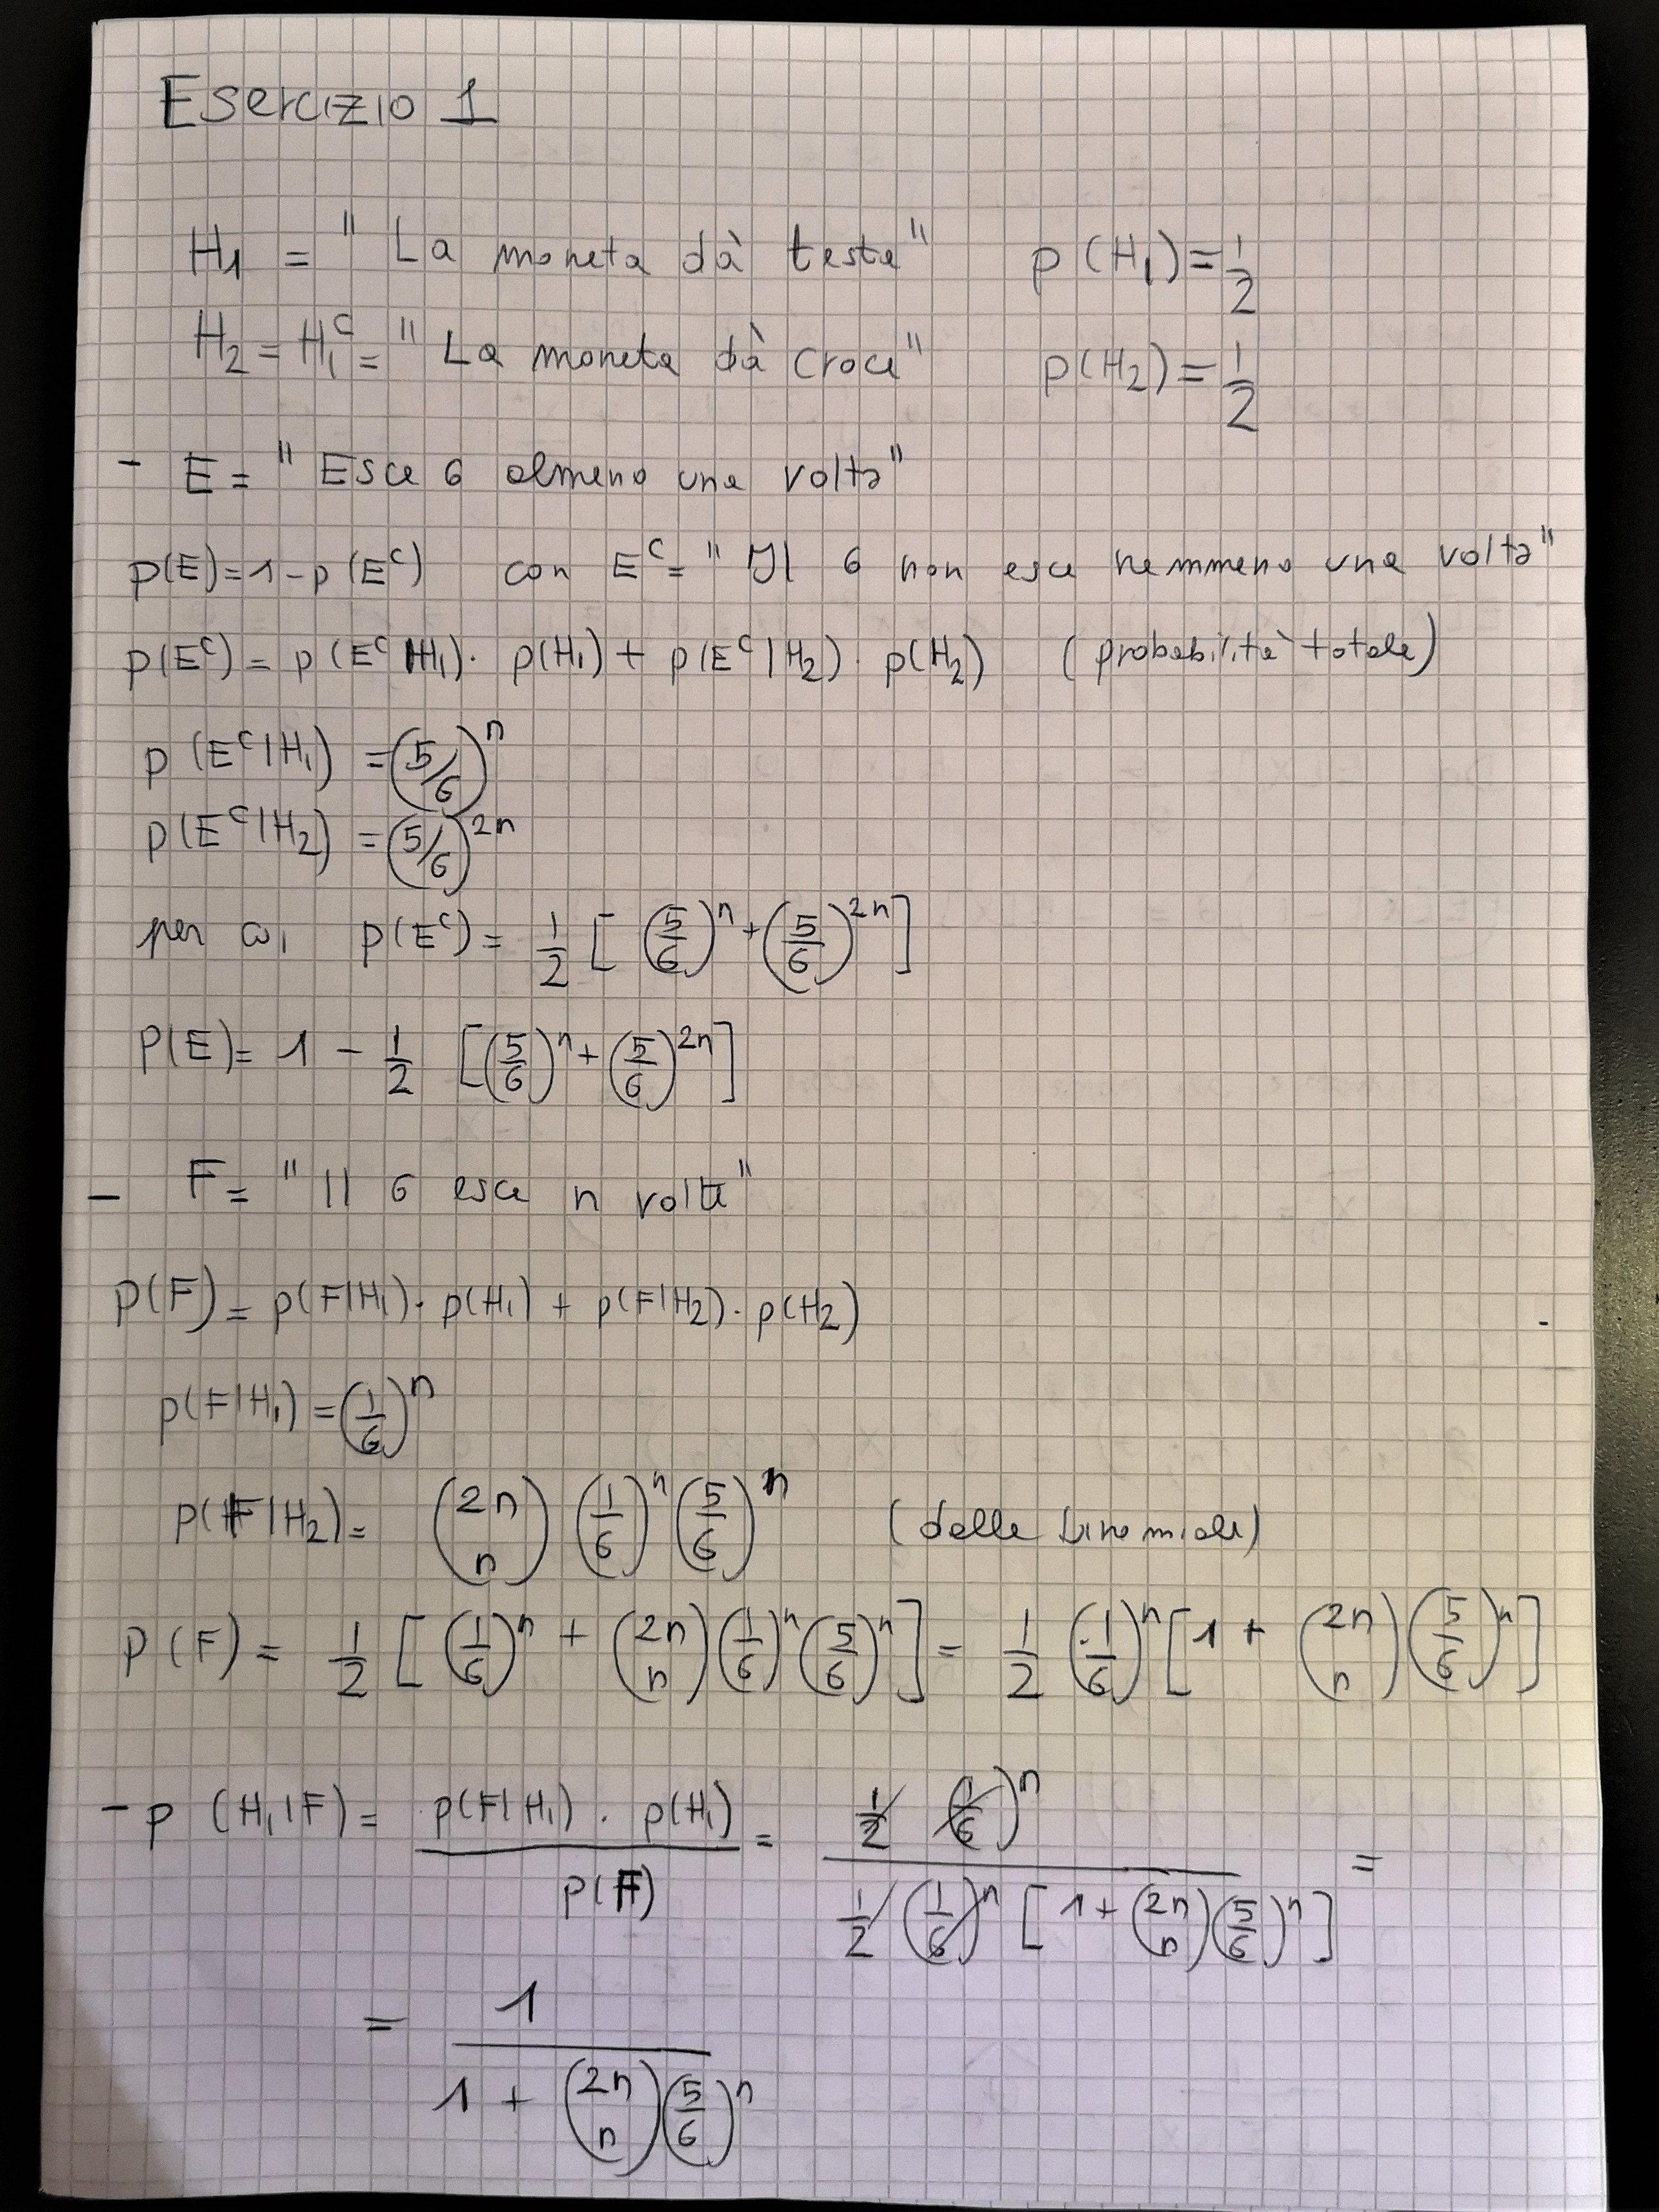 Esercizio 1
H₁ = "La moneta dà testa" p(H₁) = 1/2
H₂ = H₁ᶜ = "La moneta dà croce" p(H₂) = 1/2
- E = "Esce 6 almeno una volta"
p(E) = 1 - p(Eᶜ) con Eᶜ = "Il 6 non esce nemmeno una volta"
p(Eᶜ) = p(Eᶜ|H₁) · p(H₁) + p(Eᶜ|H₂) · p(H₂) (probabilità totale)
p(Eᶜ|H₁) = (5/6)ⁿ
p(Eᶜ|H₂) = (5/6)²ⁿ
per cui p(Eᶜ) = 1/2 [(5/6)ⁿ + (5/6)²ⁿ]
P(E) = 1 - 1/2 [(5/6)ⁿ + (5/6)²ⁿ]
- F = "Il 6 esce n volte"
P(F) = p(F|H₁) · p(H₁) + p(F|H₂) · p(H₂)
p(F|H₁) = (1/6)ⁿ
p(F|H₂) = (2n n) (1/6)ⁿ (5/6)ⁿ (dalla binomiale)
P(F) = 1/2 [(1/6)ⁿ + (2n n) (1/6)ⁿ (5/6)ⁿ] = 1/2 (1/6)ⁿ [1 + (2n n) (5/6)ⁿ]
- p(H₁|F) = p(F|H₁) · p(H₁) / p(F) = 1/2 (1/6)ⁿ / 1/2 (1/6)ⁿ [1 + (2n n) (5/6)ⁿ] =
= 1 / 1 + (2n n) (5/6)ⁿ